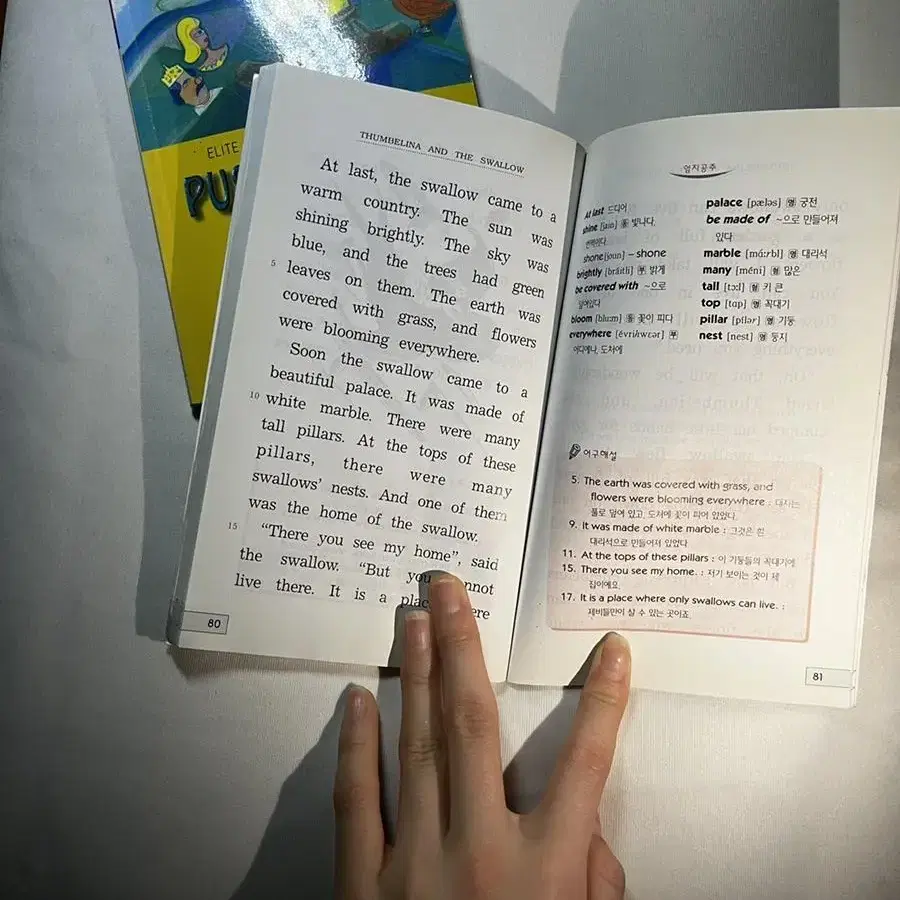 ELITE
PU
THUMBELINA AND THE SWALLOW
At last, the swallow came to a
warm country. The sun was
shining brightly. The sky was
blue, and the trees had green
5 leaves on them. The earth was
covered with grass, and flowers
were blooming everywhere.
Soon the swallow came to a
beautiful palace. It was made of
10 white marble. There were many
tall pillars. At the tops of these
pillars, there were many
swallows' nests. And one of them
was the home of the swallow.
15 "There you see my home", said
the swallow. "But you
live there. It is a
80
엄지공주
At last 드디어
shine [ʃain] 동 빛나다,
shone [ʃoun] – shone
brightly [bráitli] 부 밝게
be covered with ~으로
덮여있다
bloom [blu:m] 동 꽃이 피다
everywhere [évriʰwɛər] 부
어디에나, 도처에
palace [pǽləs] 명 궁전
be made of ~으로 만들어져
있다
marble [mɑ́:rbl] 명 대리석
many [méni] 형 많은
tall [tɔ:l] 형 키 큰
top [tɑp] 명 꼭대기
pillar [pílər] 명 기둥
nest [nest] 명 둥지
어구해설
5. The earth was covered with grass, and
flowers were blooming everywhere : 대지는
풀로 덮여 있고, 도처에 꽃이 피어 있었다.
9. It was made of white marble : 그것은 흰
대리석으로 만들어져 있었다
11. At the tops of these pillars : 이 기둥들의 꼭대기에
15. There you see my home. : 저기 보이는 것이 제
집이에요.
17. It is a place where only swallows can live. :
제비들만이 살 수 있는 곳이죠.
81